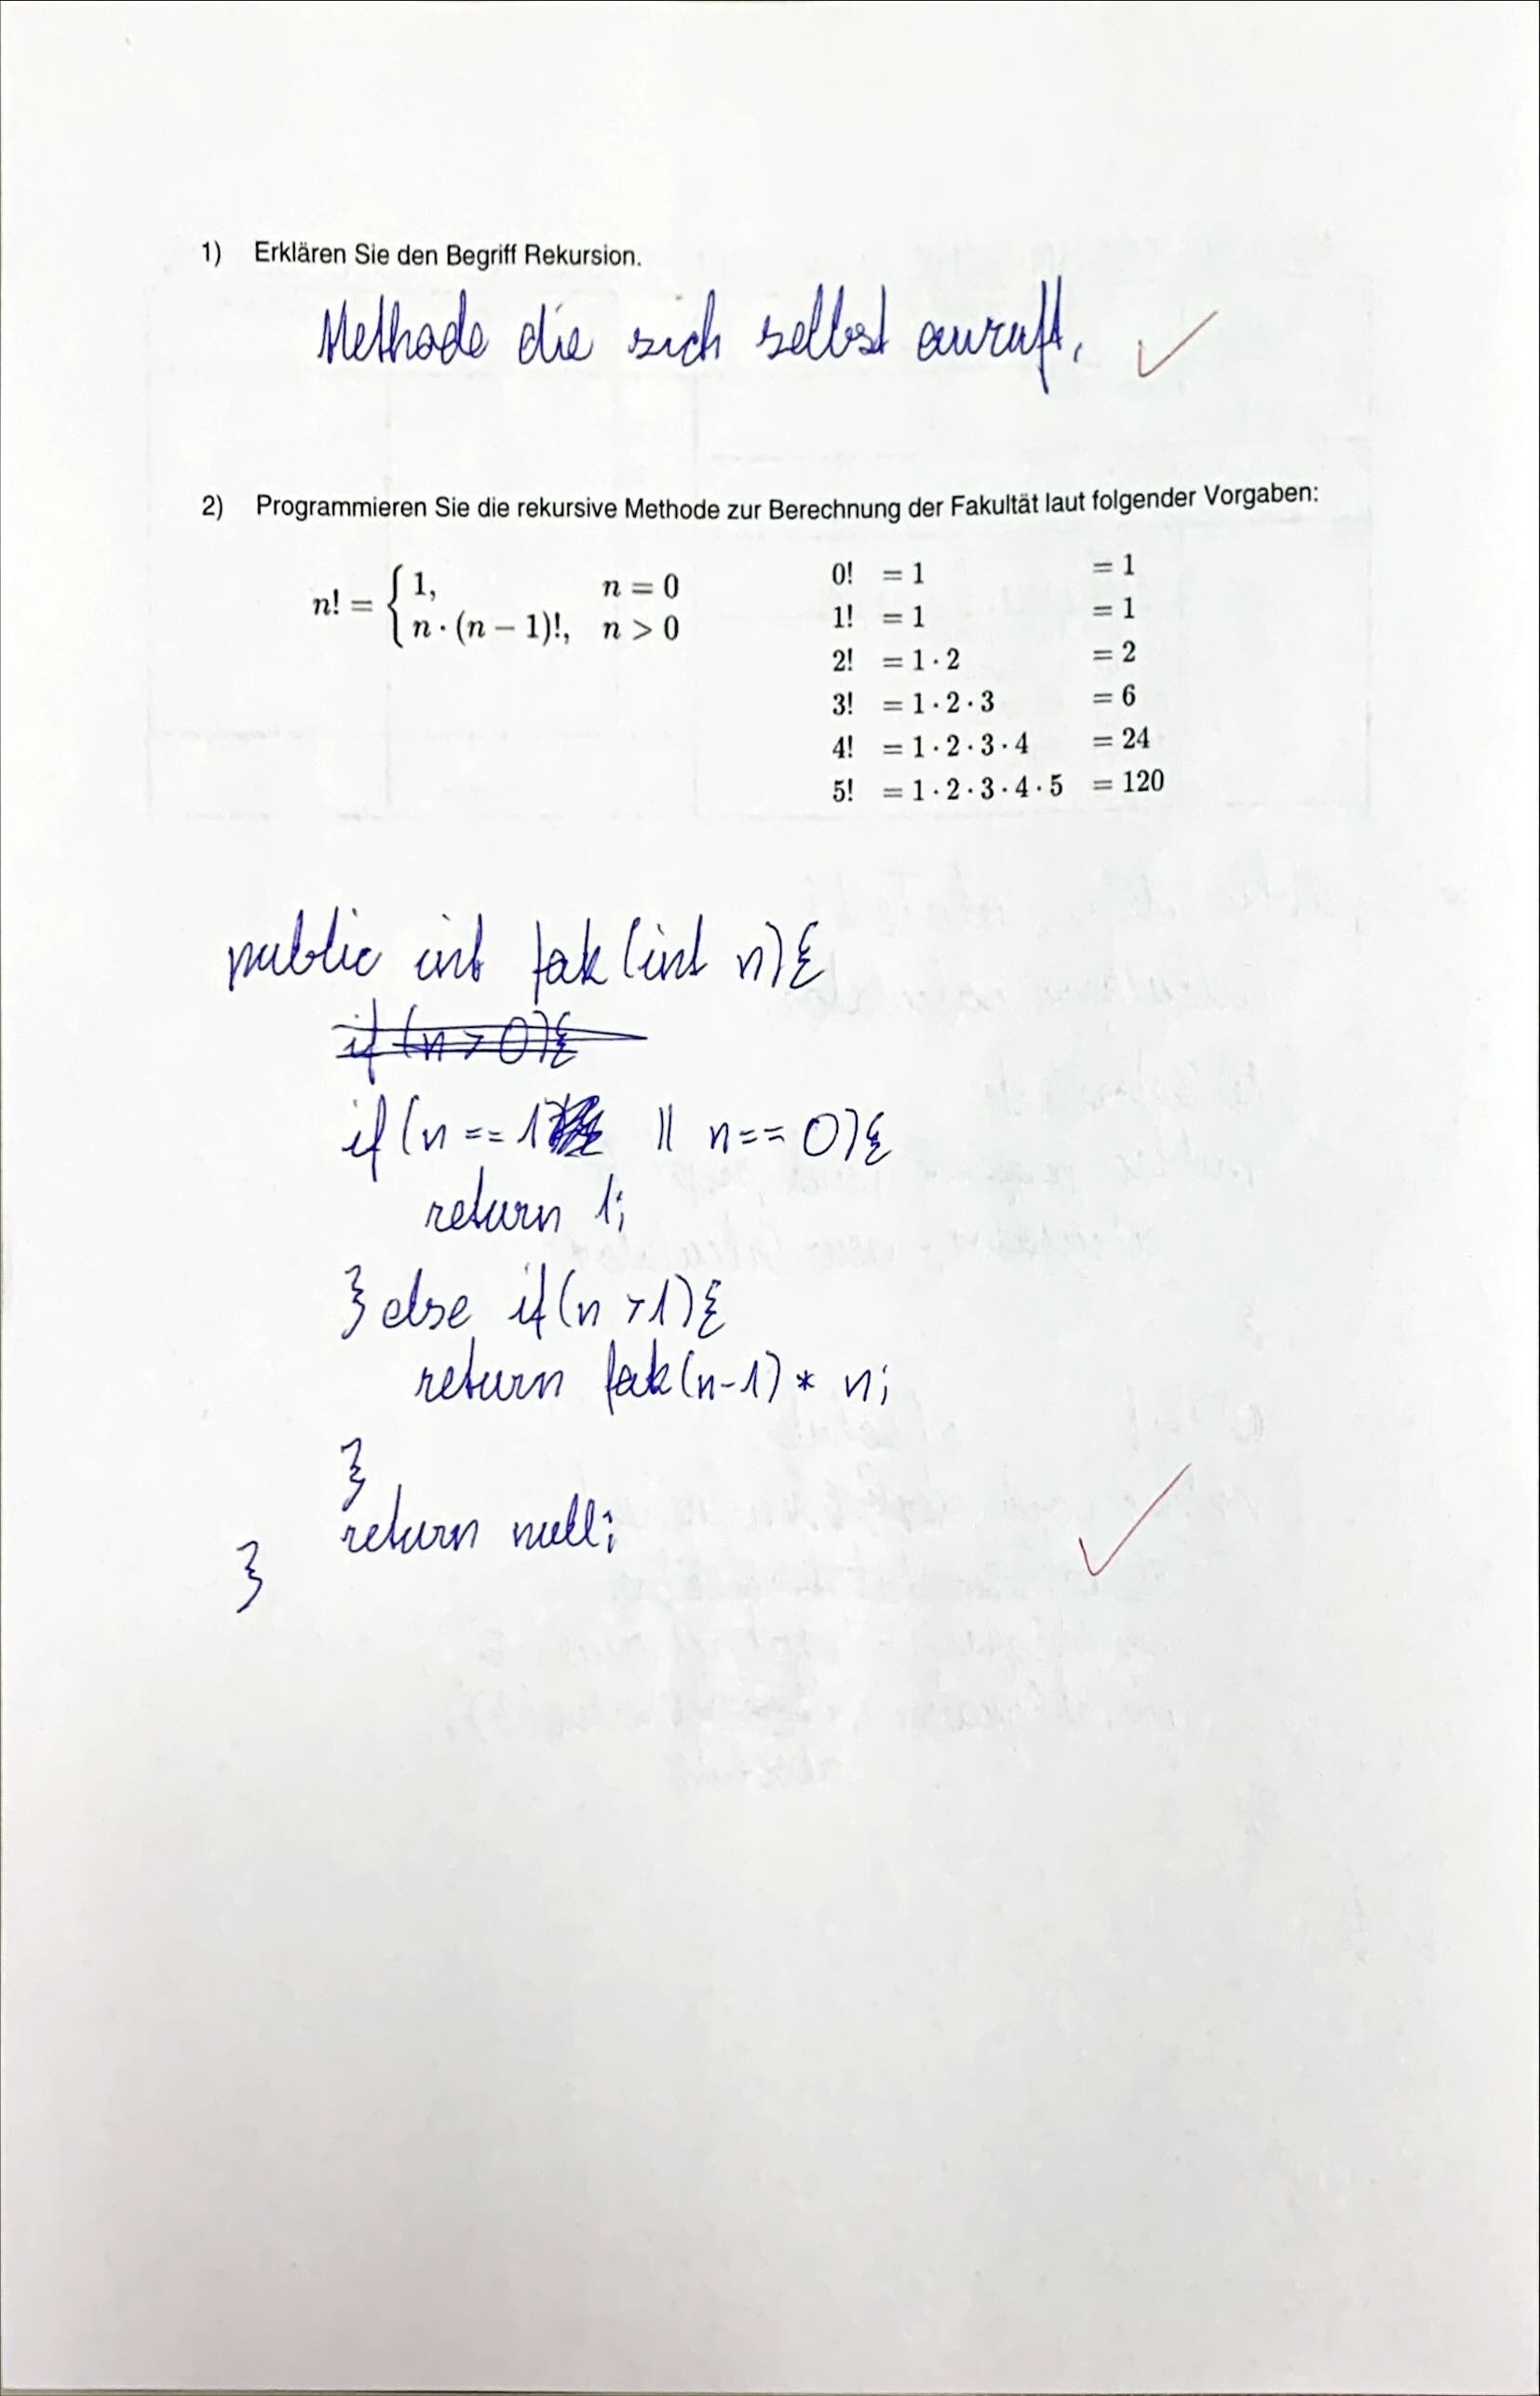 1) Erklären Sie den Begriff Rekursion.
Methode die sich selbst aufruft.
2) Programmieren Sie die rekursive Methode zur Berechnung der Fakultät laut folgender Vorgaben:
n! = { 1, n = 0
n · (n − 1)!, n > 0
0! = 1 = 1
1! = 1 = 1
2! = 1 · 2 = 2
3! = 1 · 2 · 3 = 6
4! = 1 · 2 · 3 · 4 = 24
5! = 1 · 2 · 3 · 4 · 5 = 120
public int fak (int n){
if (n > 0){
if (n == 1 || n == 0){
return 1;
} else if (n > 1){
return fak(n-1) * n;
}
return null;
}